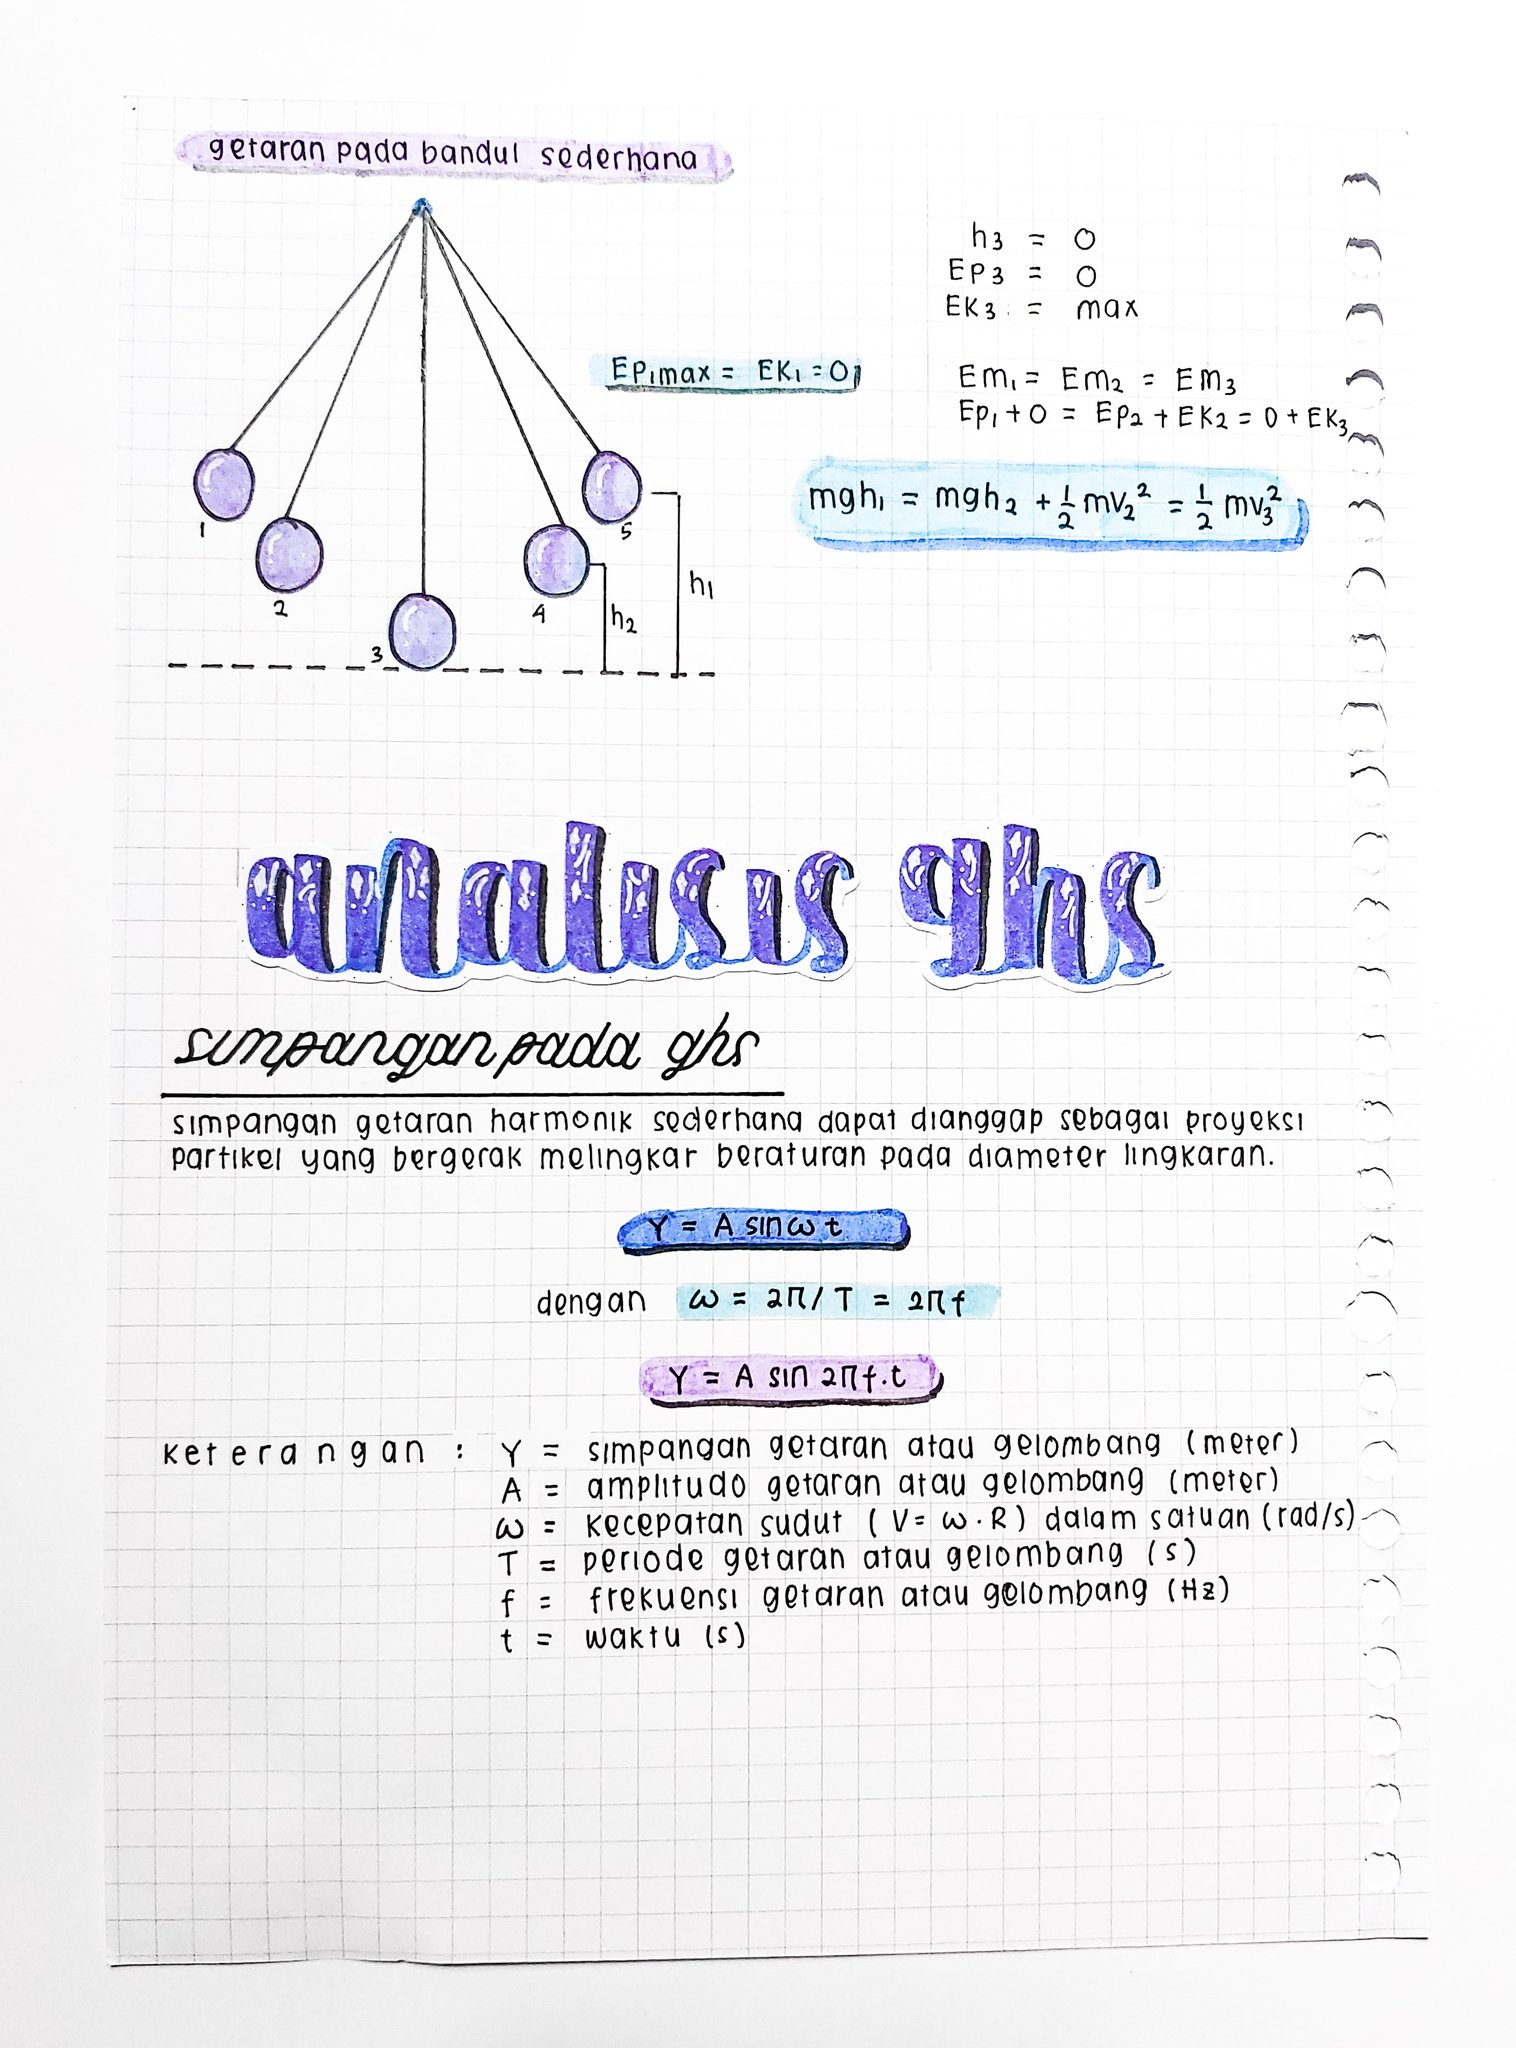 getaran pada bandul sederhana
h3 = 0
Ep3 = 0
EK3 = max
Ep1max = EK1 = 0
Em1 = Em2 = Em3
Ep1 + 0 = Ep2 + EK2 = 0 + EK3
mgh1 = mgh2 + 1/2 mv2² = 1/2 mv3²
1
2
3
4
5
h2
h1
analisis ghs
simpangan pada ghs
simpangan getaran harmonik sederhana dapat dianggap sebagai proyeksi
partikel yang bergerak melingkar beraturan pada diameter lingkaran.
Y = A sin ω t
dengan ω = 2π/T = 2πf
Y = A sin 2πf.t
Keterangan : Y = simpangan getaran atau gelombang (meter)
A = amplitudo getaran atau gelombang (meter)
ω = kecepatan sudut (V = ω . R) dalam satuan (rad/s)
T = periode getaran atau gelombang (s)
f = frekuensi getaran atau gelombang (Hz)
t = waktu (s)